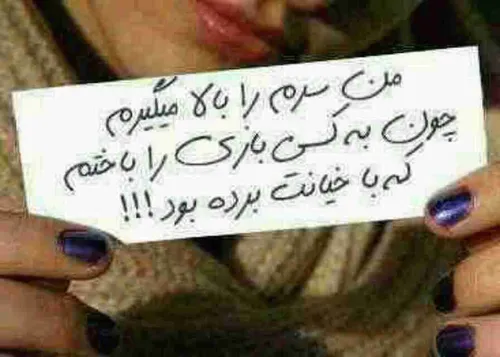 من سرم را بالا میگیرم
چون به کسی بازی را باختم
که با خیانت برده بود !!!